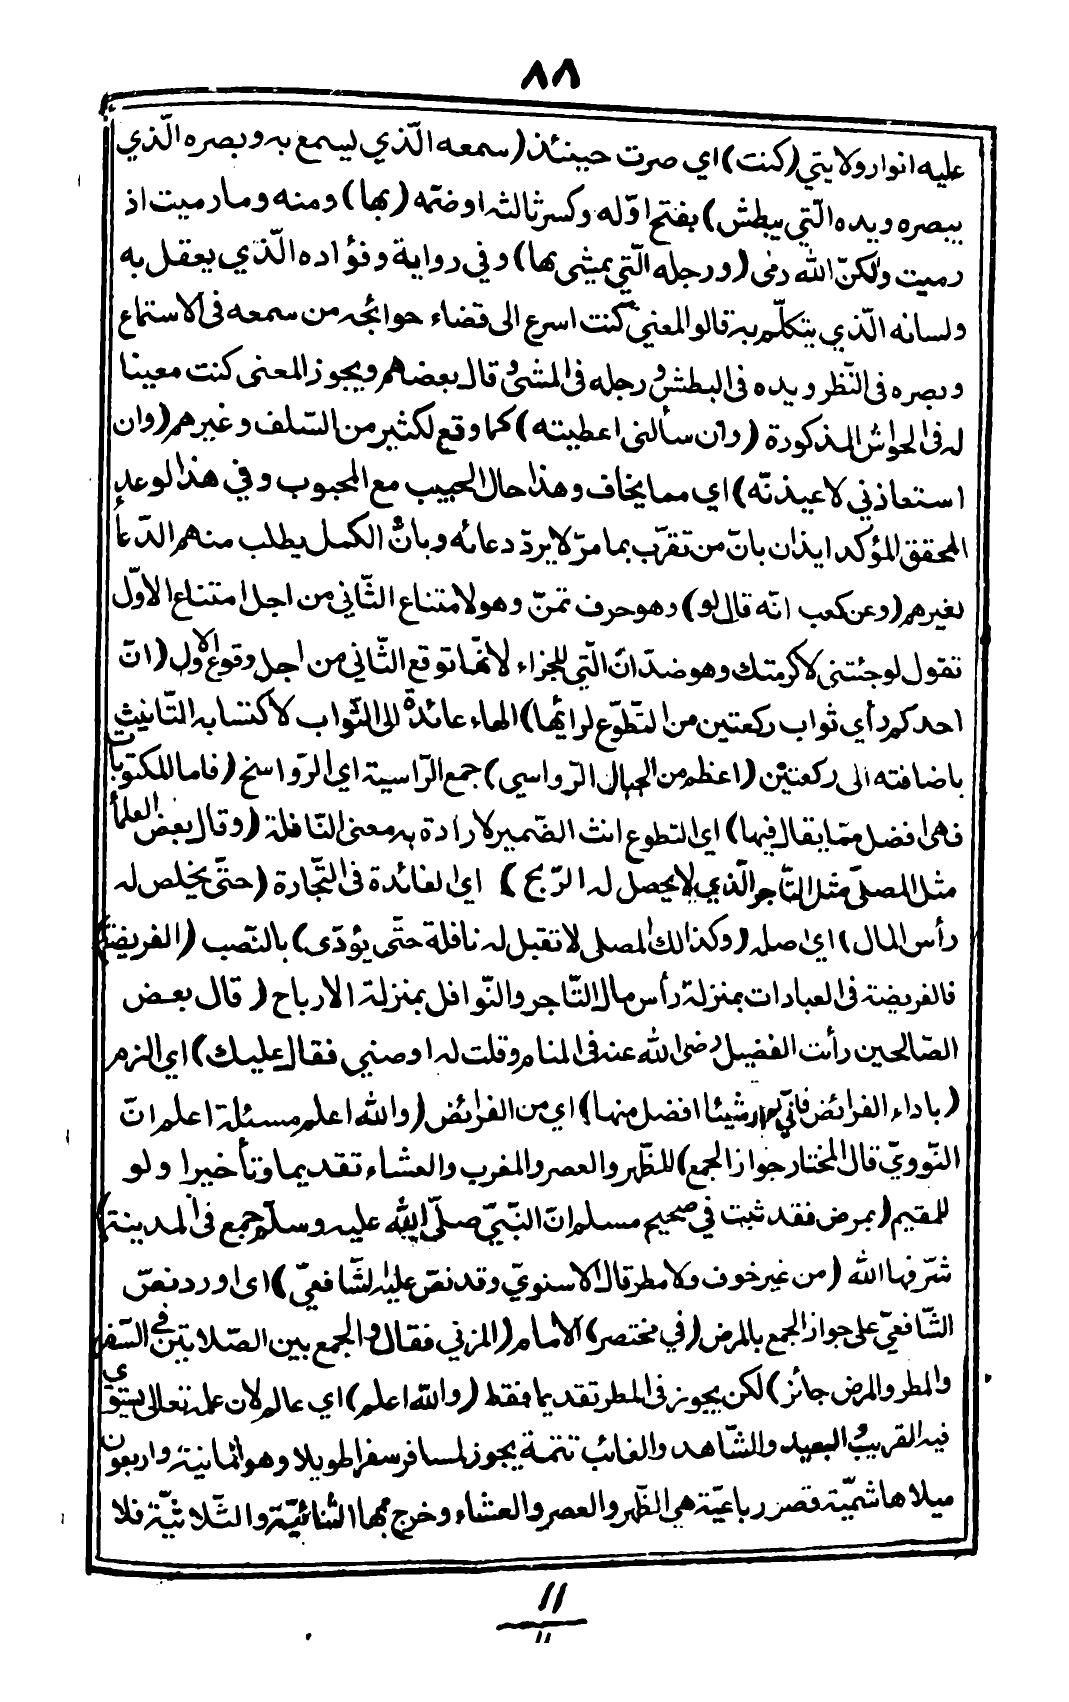 ٨٨
عليه انوار ولايتي (كنت) اي صرت حينئذ (سمعه الّذي يسمع به وبصره الّذي
يبصره ويده الّتي يبطش) بفتح اوّله وكسر ثالثه او ضمّه (بها) ومنه وما رميت اذ
رميت ولكنّ الله رمى (ورجله الّتي يمشي بها) وفي رواية وفؤاده الّذي يعقل به
ولسانه الّذي يتكلّم به قالو المعنىّ كنت اسرع الى قضاء حوائجه من سمعه فى الاستماع
وبصره فى النّظر ويده فى البطش ورجله فى المشى قال بعضهم ويجوز المعنى كنت معينا
له فى الحواسّ المذكورة (وان سألنى اعطيته) كما وقع لكثير من السّلف وغيرهم (وان
استعاذني لاعيذنّه) اي مما يخاف وهذا حال الحبيب مع المحبوب وفي هذا الوعد
المحقق المؤكد ايذان بانّ من تقرّب بما مرّ لا يردّ دعائه وبانّ الكمل يطلب منهم الدّعأ
لغيرهم (وعن كعب انّه قال لو) وهو حرف تمنّ وهو لامتناع الثّاني من اجل امتناع الاوّل
تقول لو جئتنى لاكرمتك وهو ضدّ ان الّتي للجزاء لانّها توقع الثّاني من اجل وقوع الاول (انّ
احدكم رأي ثواب ركعتين من التطوّع لرائها) الهاء عائدة الى الثّواب لاكتسابه التّانيث
باضافته الى ركعتين (اعظم من الجبال الرّواسي) جمع الرّاسية اي الرّواسخ (فاما المكتوبات
فهى افضل ممّا يقال فيها) اي التطوع انث الضّمير لارادة به معنى النّافلة (وقال بعض العلمأ
مثل المصلى مثل التّاجر الّذي لا يحصل له الرّبح) اي الفائدة فى التّجارة (حتّى يخلص له
رأس المال) اي اصله (وكذالك المصلى لا تقبل له نافلة حتّى يؤدّى) بالنّصب (الفريضة)
فالفريضة فى العبادات بمنزلة رأس مال التّاجر والنّوافل بمنزلة الارباح (قال بعض
الصّالحين رأت الفضيل رضى الله عنه فى المنام وقلت له اوصني فقال عليك) اي الزم
(باداء الفرائض فانّي لم ار شيئا افضل منها) اي من الفرائض (والله اعلم مسئلة اعلم انّ
النّوويّ قال المختار جواز الجمع) للظّهر والعصر والمغرب والعشاء تقديما وتأخيرا ولو
للمقيم (بمرض فقد ثبت في صحيح مسلم انّ النّبيّ صلّى الله عليه وسلّم جمع فى المدينة)
شرّفها الله (من غير خوف ولا مطر قال الاسنويّ وقد نصّ عليه الشّافعيّ) اى اورد نصّ
الشّافعيّ على جواز الجمع بالمرض (في مختصر) الامام (المزني فقال والجمع بين الصّلاتين في السّفر
والمطر والمرض جائز) لكن يجوز فى المطر تقديما فقط (والله اعلم) اي عالم لان علمه تعالى يستوي
فيه القريب والبعيد والشّاهد والغائب تتمة يجوز لمسافر سفرا طويلا وهو ثمانية واربعون
ميلا هاشميّة قصر رباعيّة هي الظّهر والعصر والعشاء وخرج بها الثّنائيّة والثّلاثيّة فلا
١١
١١